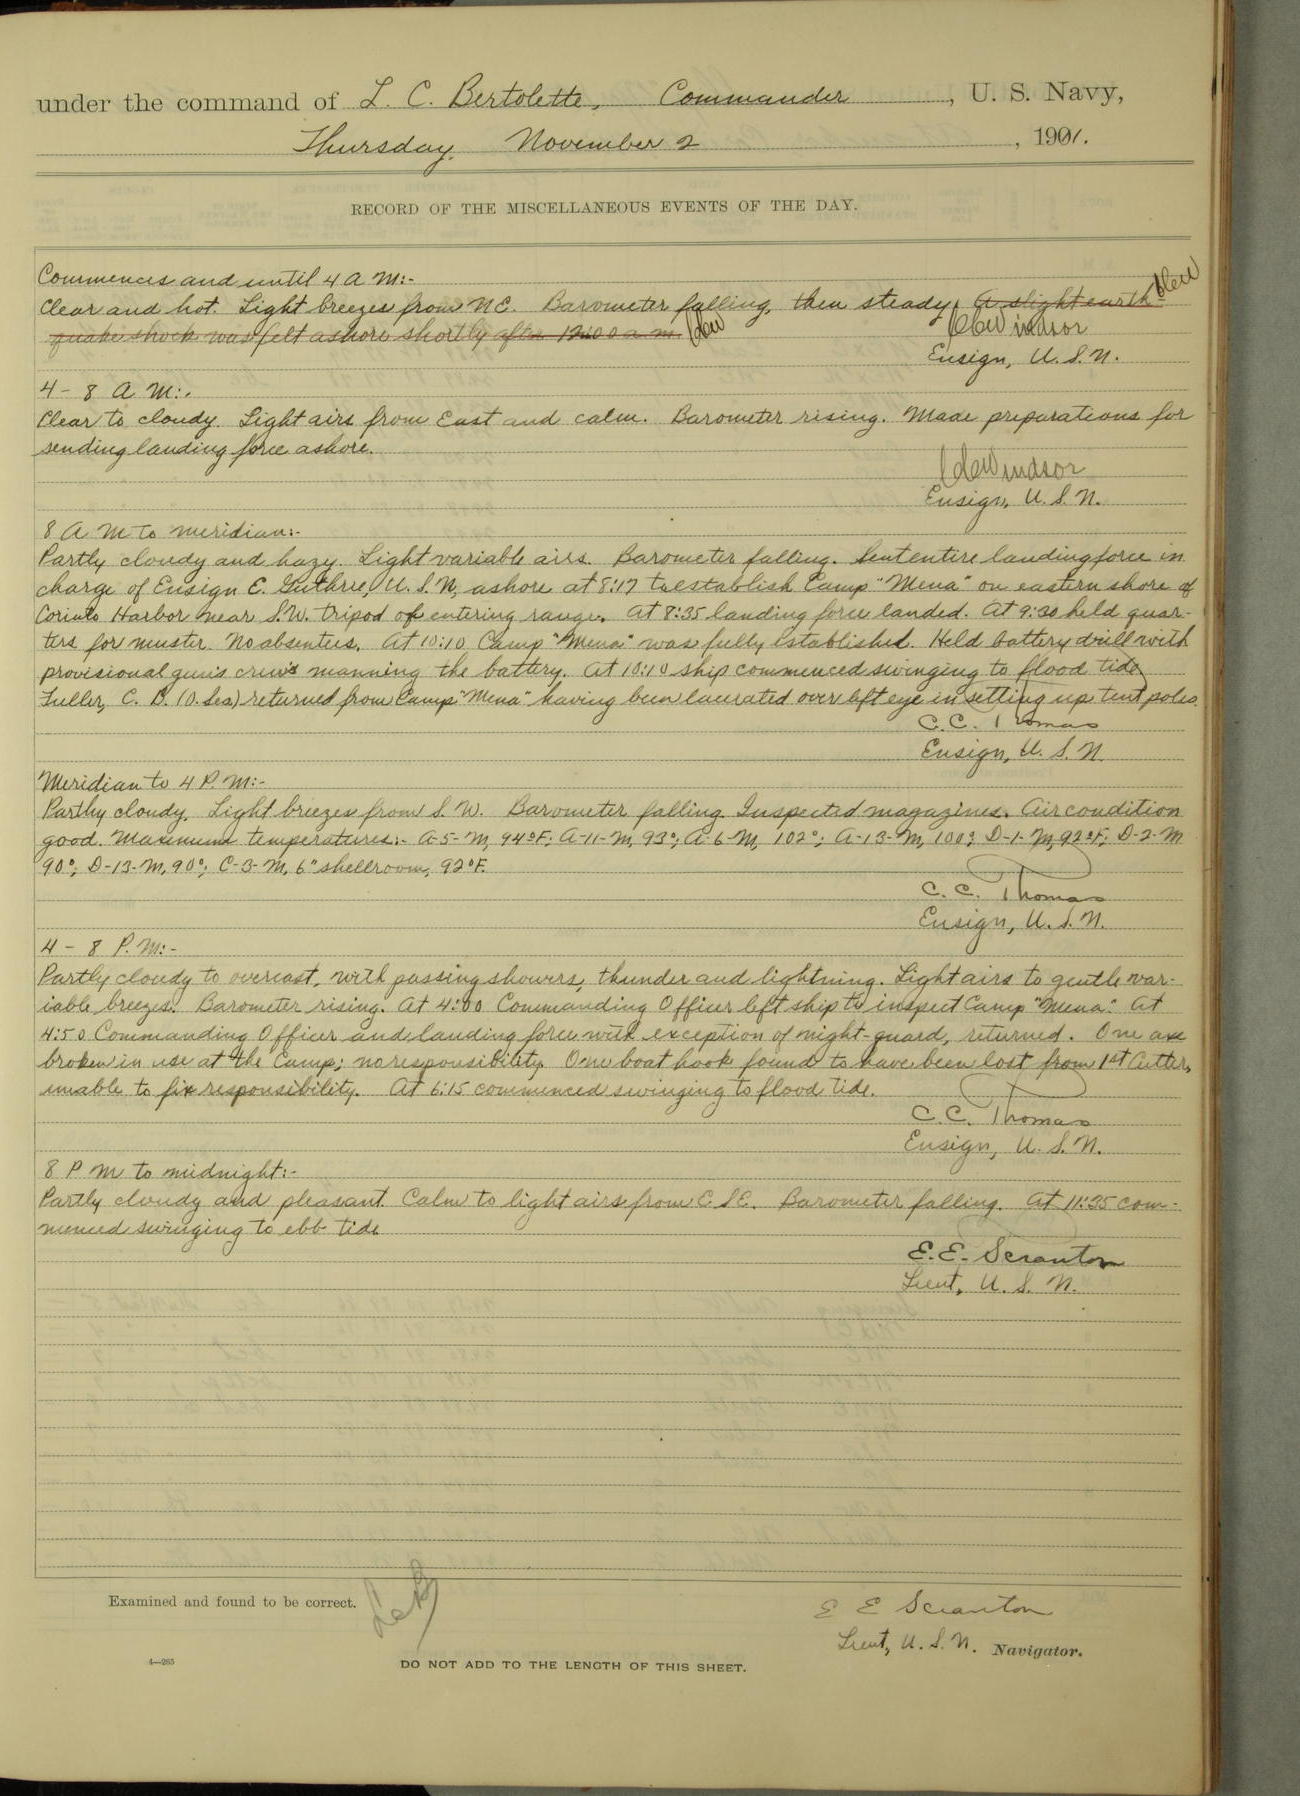 under the command of L. C. Bertolette, Commander, U. S. Navy,
Thursday, November 2, 1901.
RECORD OF THE MISCELLANEOUS EVENTS OF THE DAY.
Commences and until 4 A M:-
Clear and hot. Light breezes from NE. Barometer falling, then steady. A slight earth-
quake shock was felt ashore shortly after 12:00 a m.
CEWindsor
Ensign, U. S. N.
4 - 8 A M:-
Clear to cloudy. Light airs from East and calm. Barometer rising. Made preparations for
sending landing force ashore.
Windsor
Ensign, U. S. N.
8 A M to meridian:-
Partly cloudy and hazy. Light variable airs. Barometer falling. Sent entire landing force in
charge of Ensign E. Guthrie, U. S. N, ashore at 8:17 to establish Camp "Mena" on eastern shore of
Corinto Harbor near S.W. tripod of entering range. At 8:35 landing force landed. At 9:30 held quar-
ters for muster. No absentees. At 10:10 Camp "Mena" was fully established. Held battery drill with
provisional guns crews manning the battery. At 10:10 ship commenced swinging to flood tide
Fuller, C. D. (O. Sea) returned from Camp "Mena" having been lacerated over left eye in setting up tent poles.
C. C. Thomas
Ensign, U. S. N.
Meridian to 4 P. M:-
Partly cloudy. Light breezes from S. W. Barometer falling. Inspected magazines. Air condition
good. Maximum temperatures:- A-5-M, 94°F; A-11-M, 93°; A-6-M, 102°; A-13-M, 100°; D-1-M, 92°F; D-2-M
90°; D-13-M, 90°; C-3-M, 6" shellroom, 92°F.
C. C. Thomas
Ensign, U. S. N.
4 - 8 P. M:-
Partly cloudy to overcast, with passing showers, thunder and lightning. Light airs to gentle var-
iable breezes. Barometer rising. At 4:00 Commanding Officer left ship to inspect Camp "Mena". At
4:50 Commanding Officer and landing force with exception of night-guard, returned. One axe
broken in use at the Camp; no responsibility. One boat hook found to have been lost from 1st Cutter,
unable to fix responsibility. At 6:15 commenced swinging to flood tide.
C. C. Thomas
Ensign, U. S. N.
8 P M to midnight:-
Partly cloudy and pleasant. Calm to light airs from E S E. Barometer falling. At 11:35 com-
menced swinging to ebb tide
E. E. Scranton
Lieut, U. S. N.
Examined and found to be correct.
LCB
E E Scranton
Lieut, U. S. N. Navigator.
4—265
DO NOT ADD TO THE LENGTH OF THIS SHEET.